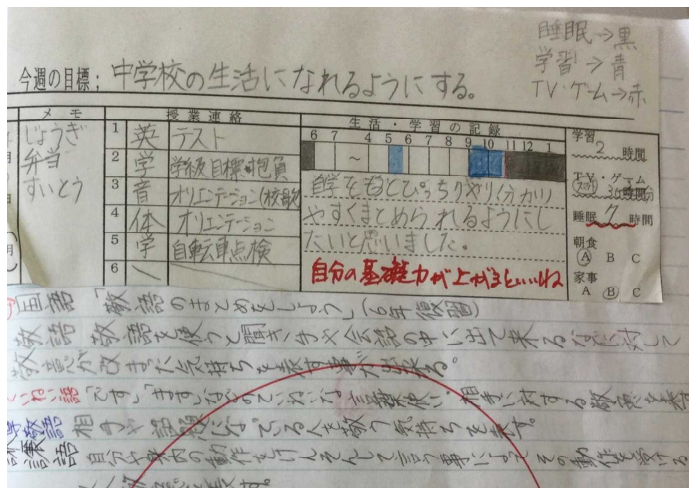 睡眠→黒
学習→青
TV・ゲーム→赤
今週の目標: 中学校の生活になれるようにする。
メモ
じょうぎ
弁当
すいとう
授業連絡
1 英 テスト
2 学 学級目標・抱負
3 音 オリエンテーション(校歌)
4 体 オリエンテーション
5 学 自転車点検
6
生活・学習の記録
6 7 ~ 4 5 6 7 8 9 10 11 12 1
自学をもっとぴっちりやり(分かり
やすくまとめられるようにし
たいと思いました。
自分の基礎力が上がるといいね
学習 2 時間
TV・ゲーム
睡眠 7 時間
朝食
A B C
家事
A B C
国語 「敬語のまとめをしよう」(6年復習)
敬語 敬語を使うと聞き手や会話の中に出て来る
敬意が改まった気持ちを表す事が出来る。
ていねい語「です」「ます」などのていねいな言葉使い。相手に対する敬意を表す
尊敬語 相手や話題になっている人を敬う気持ちを表す。
謙譲語 自分や身内の動作をけんそんして言う事によってその動作を受ける